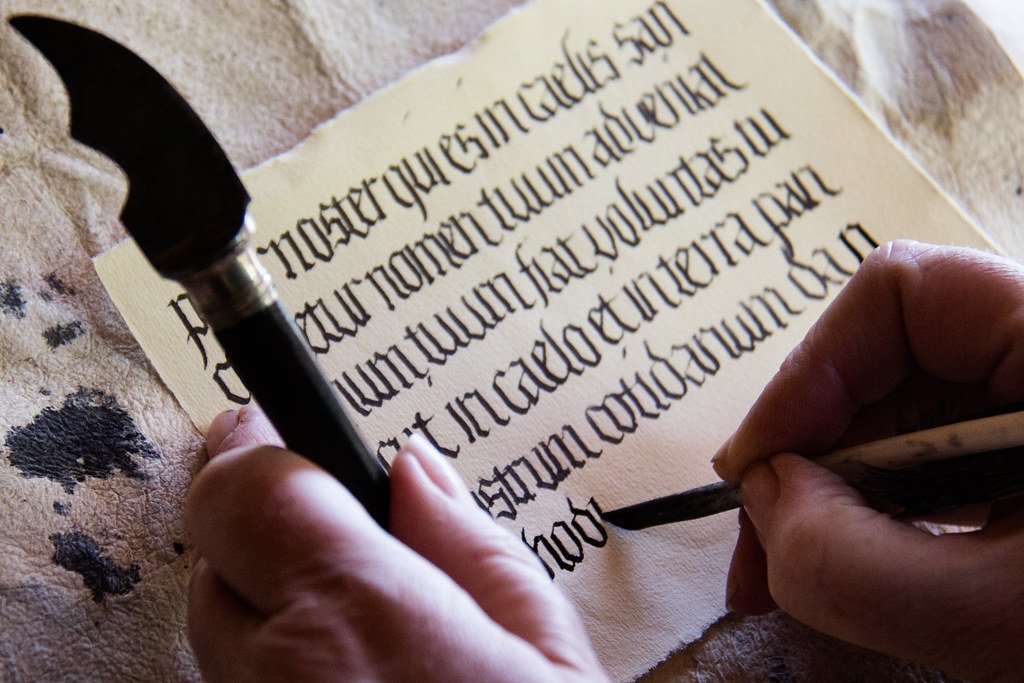 P r noster qui es in caelis san
c etur nomen tuum adveniat
num tuum fiat voluntas tu
cut in caelo et in terra pan
strum cotidianum da n
hodi